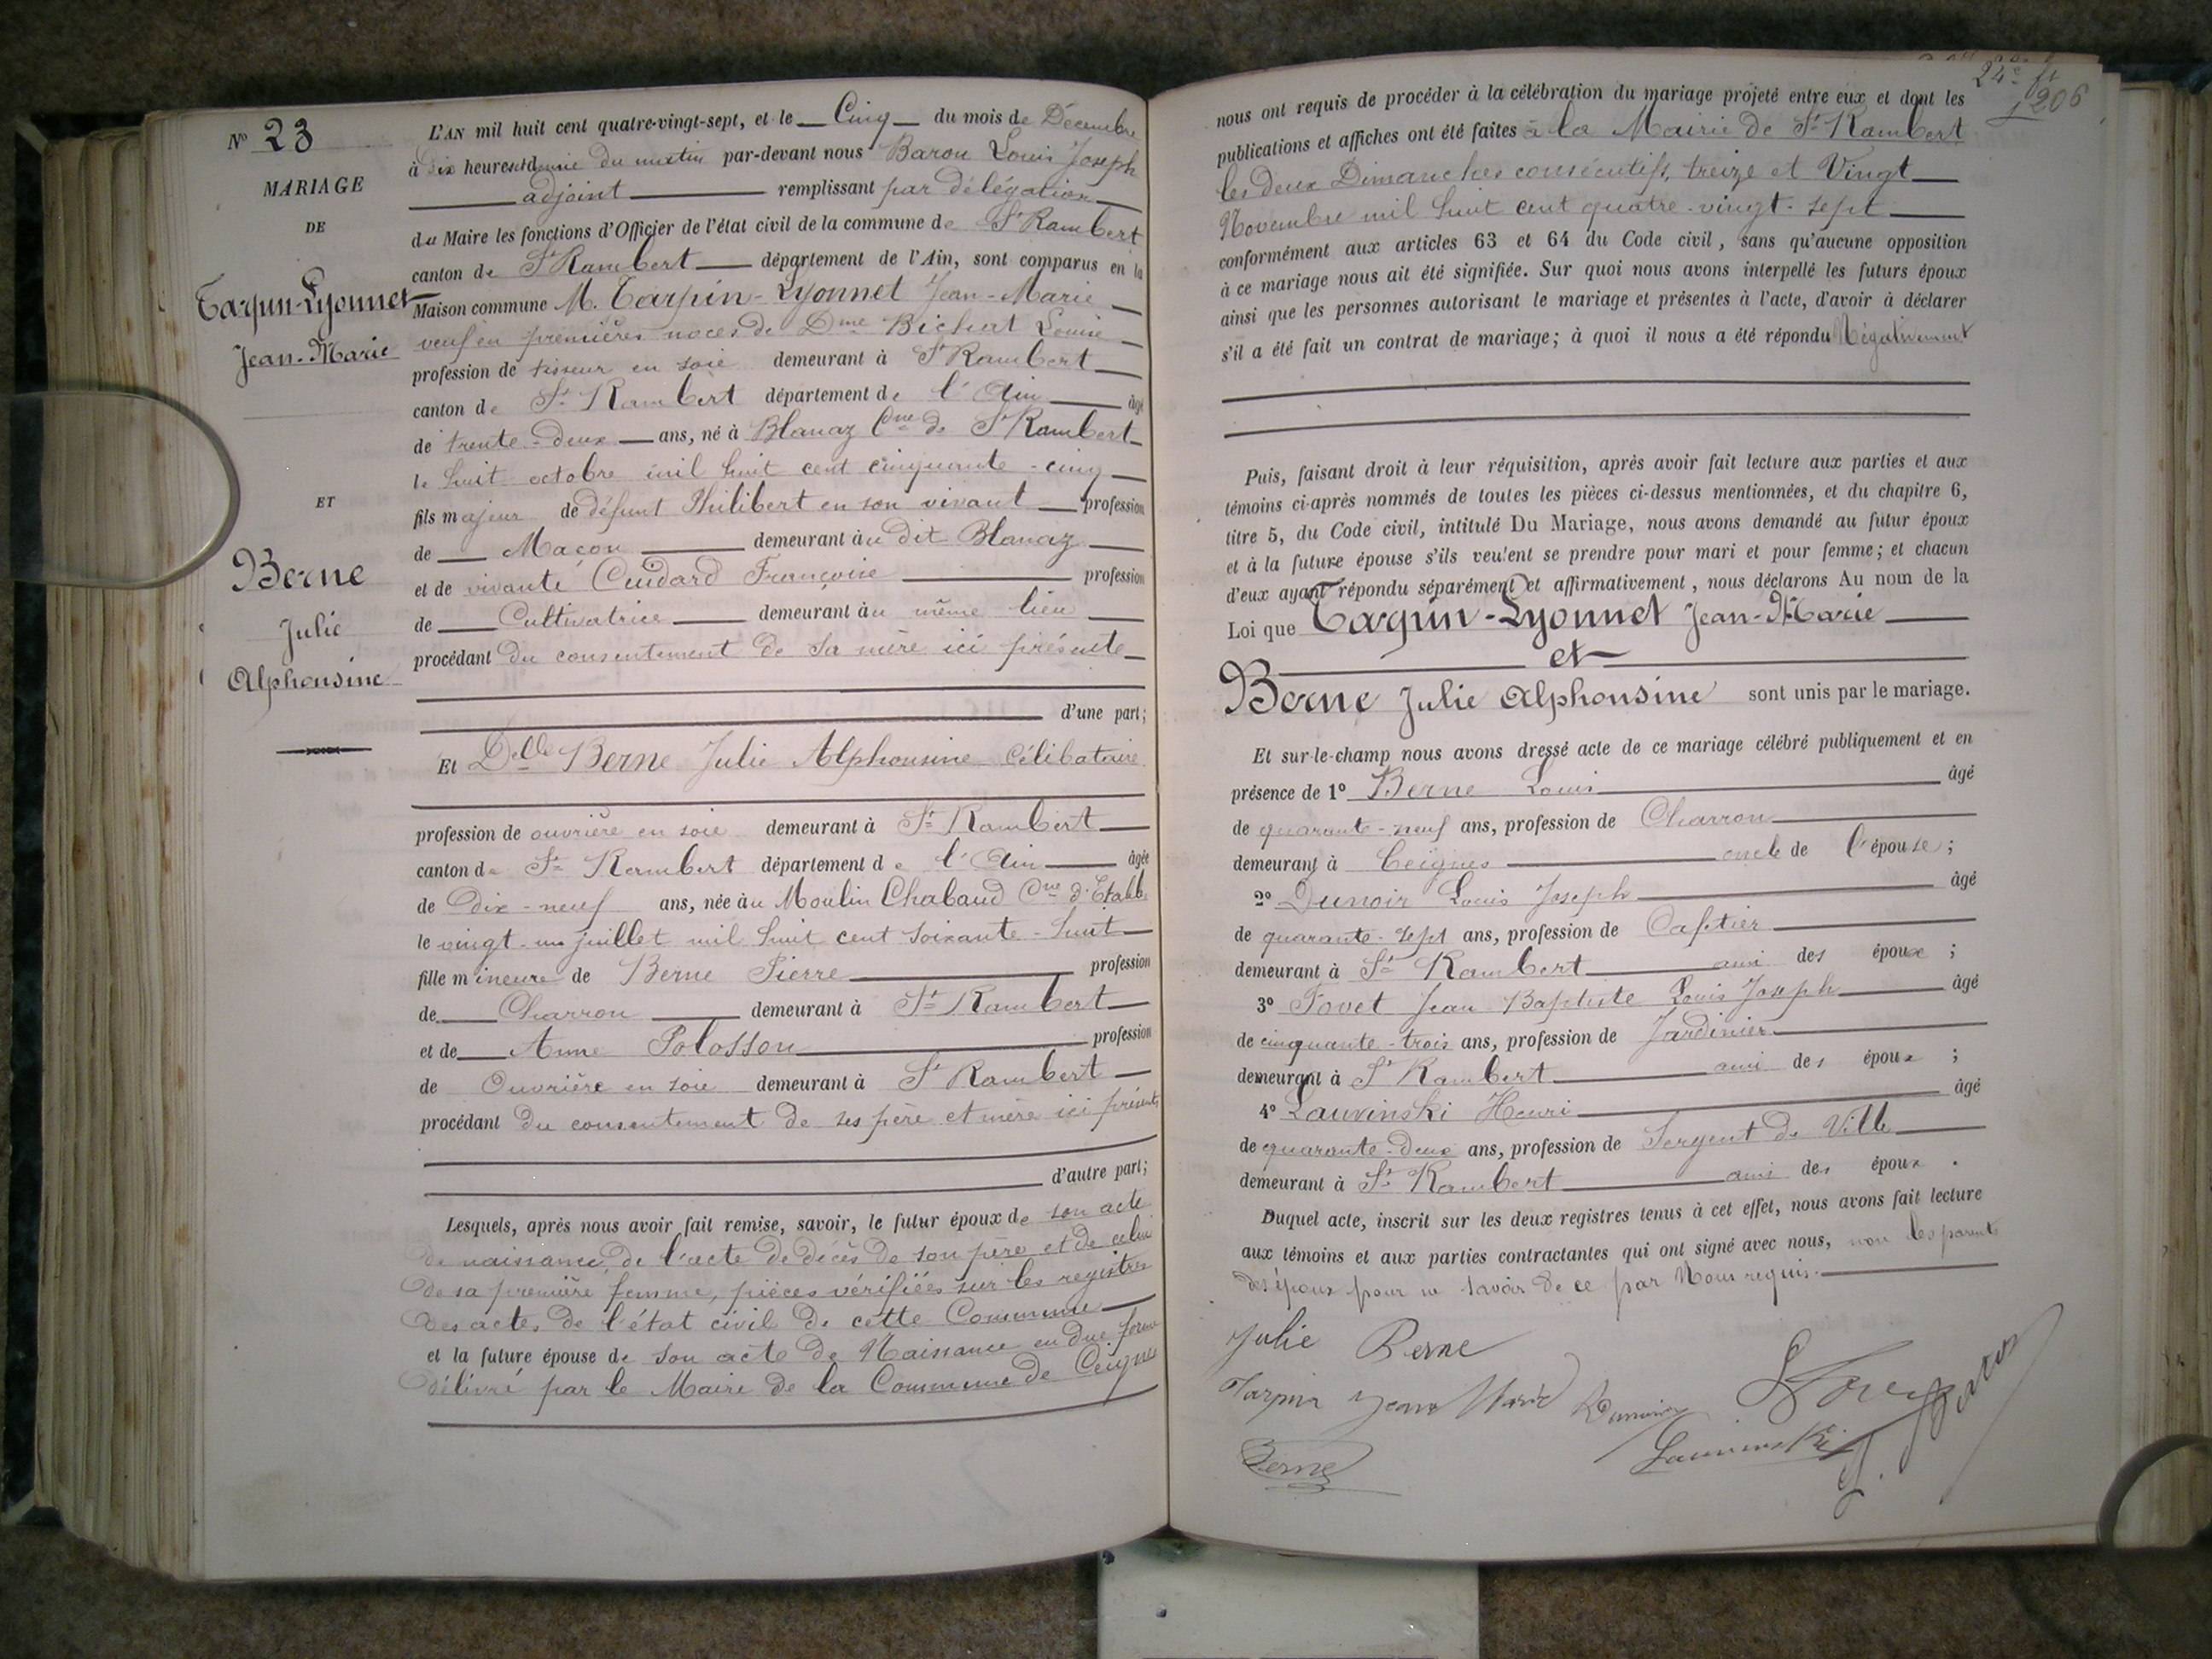 N° 23
MARIAGE
DE
Tarpin-Lyonnet
Jean-Marie
ET
Berne
Julie
Alphonsine
L'AN mil huit cent quatre-vingt-sept, et le Cinq du mois de Décembre
à dix heures et demie du matin par-devant nous Baron Louis Joseph
adjoint remplissant par délégation
du Maire les fonctions d'Officier de l'état civil de la commune de St Rambert
canton de St Rambert département de l'Ain, sont comparus en la
Maison commune M. Tarpin-Lyonnet Jean-Marie
veuf en premières noces de Dme Bichat Louise
profession de tisseur en soie demeurant à St Rambert
canton de St Rambert département de l'Ain âgé
de trente-deux ans, né à Blanaz Cne de St Rambert
le huit octobre mil huit cent cinquante-cinq
fils majeur de défunt Philibert en son vivant profession
de Maçon demeurant au dit Blanaz
et de vivante Cuidard Françoise profession
de Cultivatrice demeurant au même lieu
procédant du consentement de sa mère ici présente
d'une part;
Et Delle Berne Julie Alphonsine Célibataire
profession de ouvrière en soie demeurant à St Rambert
canton de St Rambert département de l'Ain âgée
de Dix-neuf ans, née au Moulin Chabaud Cne d'Etabl.
le vingt-un juillet mil huit cent soixante-huit
fille mineure de Berne Pierre profession
de Charron demeurant à St Rambert
et de Anne Polosson profession
de Ouvrière en soie demeurant à St Rambert
procédant du consentement de ses père et mère ici présents
d'autre part;
Lesquels, après nous avoir fait remise, savoir, le futur époux de son acte
de naissance, de l'acte de décès de son père et de celui
de sa première femme, pièces vérifiées sur les registres
des actes de l'état civil de cette Commune
et la future épouse de son acte de Naissance en due forme
délivré par le Maire de la Commune de Ceignes
24e ft
206
nous ont requis de procéder à la célébration du mariage projeté entre eux et dont les
publications et affiches ont été faites à la Mairie de St Rambert
les deux Dimanches consécutifs, treize et Vingt
Novembre mil huit cent quatre-vingt-sept
conformément aux articles 63 et 64 du Code civil, sans qu'aucune opposition
à ce mariage nous ait été signifiée. Sur quoi nous avons interpellé les futurs époux
ainsi que les personnes autorisant le mariage et présentes à l'acte, d'avoir à déclarer
s'il a été fait un contrat de mariage; à quoi il nous a été répondu Négativement
Puis, faisant droit à leur réquisition, après avoir fait lecture aux parties et aux
témoins ci-après nommés de toutes les pièces ci-dessus mentionnées, et du chapitre 6,
titre 5, du Code civil, intitulé Du Mariage, nous avons demandé au futur époux
et à la future épouse s'ils veulent se prendre pour mari et pour femme; et chacun
d'eux ayant répondu séparément et affirmativement, nous déclarons Au nom de la
Loi que Tarpin-Lyonnet Jean-Marie
et
Berne Julie Alphonsine sont unis par le mariage.
Et sur-le-champ nous avons dressé acte de ce mariage célébré publiquement et en
présence de 1° Berne Louis âgé
de quarante-neuf ans, profession de Charron
demeurant à Ceignes oncle de l'épouse;
2° Dunoir Louis Joseph âgé
de quarante-sept ans, profession de Caftier
demeurant à St Rambert ami des époux;
3° Tovet Jean Baptiste Louis Joseph âgé
de cinquante-trois ans, profession de Jardinier
demeurant à St Rambert ami des époux;
4° Lauvinski Henri âgé
de quarante-deux ans, profession de Sergent de Ville
demeurant à St Rambert ami des époux.
Duquel acte, inscrit sur les deux registres tenus à cet effet, nous avons fait lecture
aux témoins et aux parties contractantes qui ont signé avec nous, non les parents
des époux pour ne savoir de ce par Nous requis.
Julie Berne
Tarpin Jean Marie Dunoir
Lauvinski
Berne